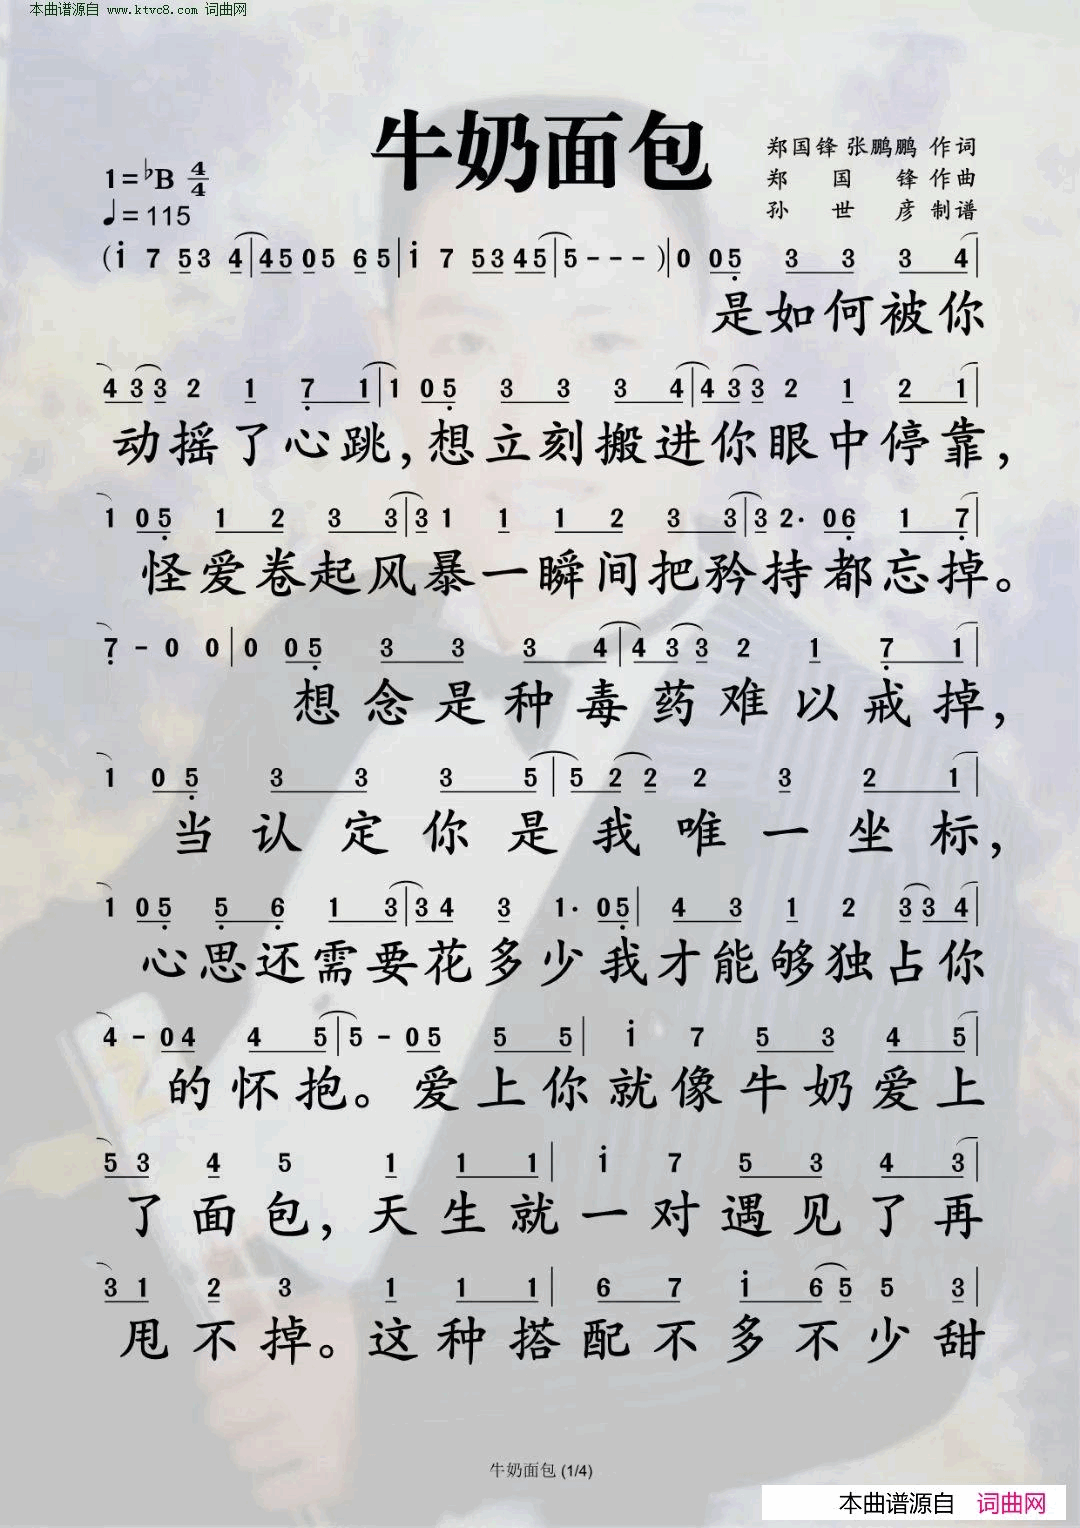 本曲谱源自 www.ktvc8.com 词曲网
牛奶面包
郑国锋 张鹏鹏 作词
1=♭B 4/4
郑国锋 作曲
♩=115
孙世彦 制谱
(i 7 53 4|45 05 65|i 7 53 45|5 - - -)|0 05 3 3 3 4|
是如何被你
4 3 3 2 1 7 1|1 05 3 3 3 4|4 3 3 2 1 2 1|
动摇了心跳,想立刻搬进你眼中停靠,
1 05 1 2 3 3|3 1 1 1 2 3 3|3 2· 06 1 7|
怪爱卷起风暴一瞬间把矜持都忘掉。
7 - 0 0|0 05 3 3 3 4|4 3 3 2 1 7 1|
想念是种毒药难以戒掉,
1 05 3 3 3 5|5 2 2 2 3 2 1|
当认定你是我唯一坐标,
1 05 5 6 1 3|3 4 3 1· 05|4 3 1 2 3 3 4|
心思还需要花多少我才能够独占你
4 - 04 4 5|5 - 05 5 5|i 7 5 3 4 5|
的怀抱。爱上你就像牛奶爱上
5 3 4 5 1 1 1|i 7 5 3 4 3|
了面包,天生就一对遇见了再
3 1 2 3 1 1 1|6 7 i 6 5 5 3|
甩不掉。这种搭配不多不少甜
牛奶面包 (1/4)
本曲谱源自 词曲网